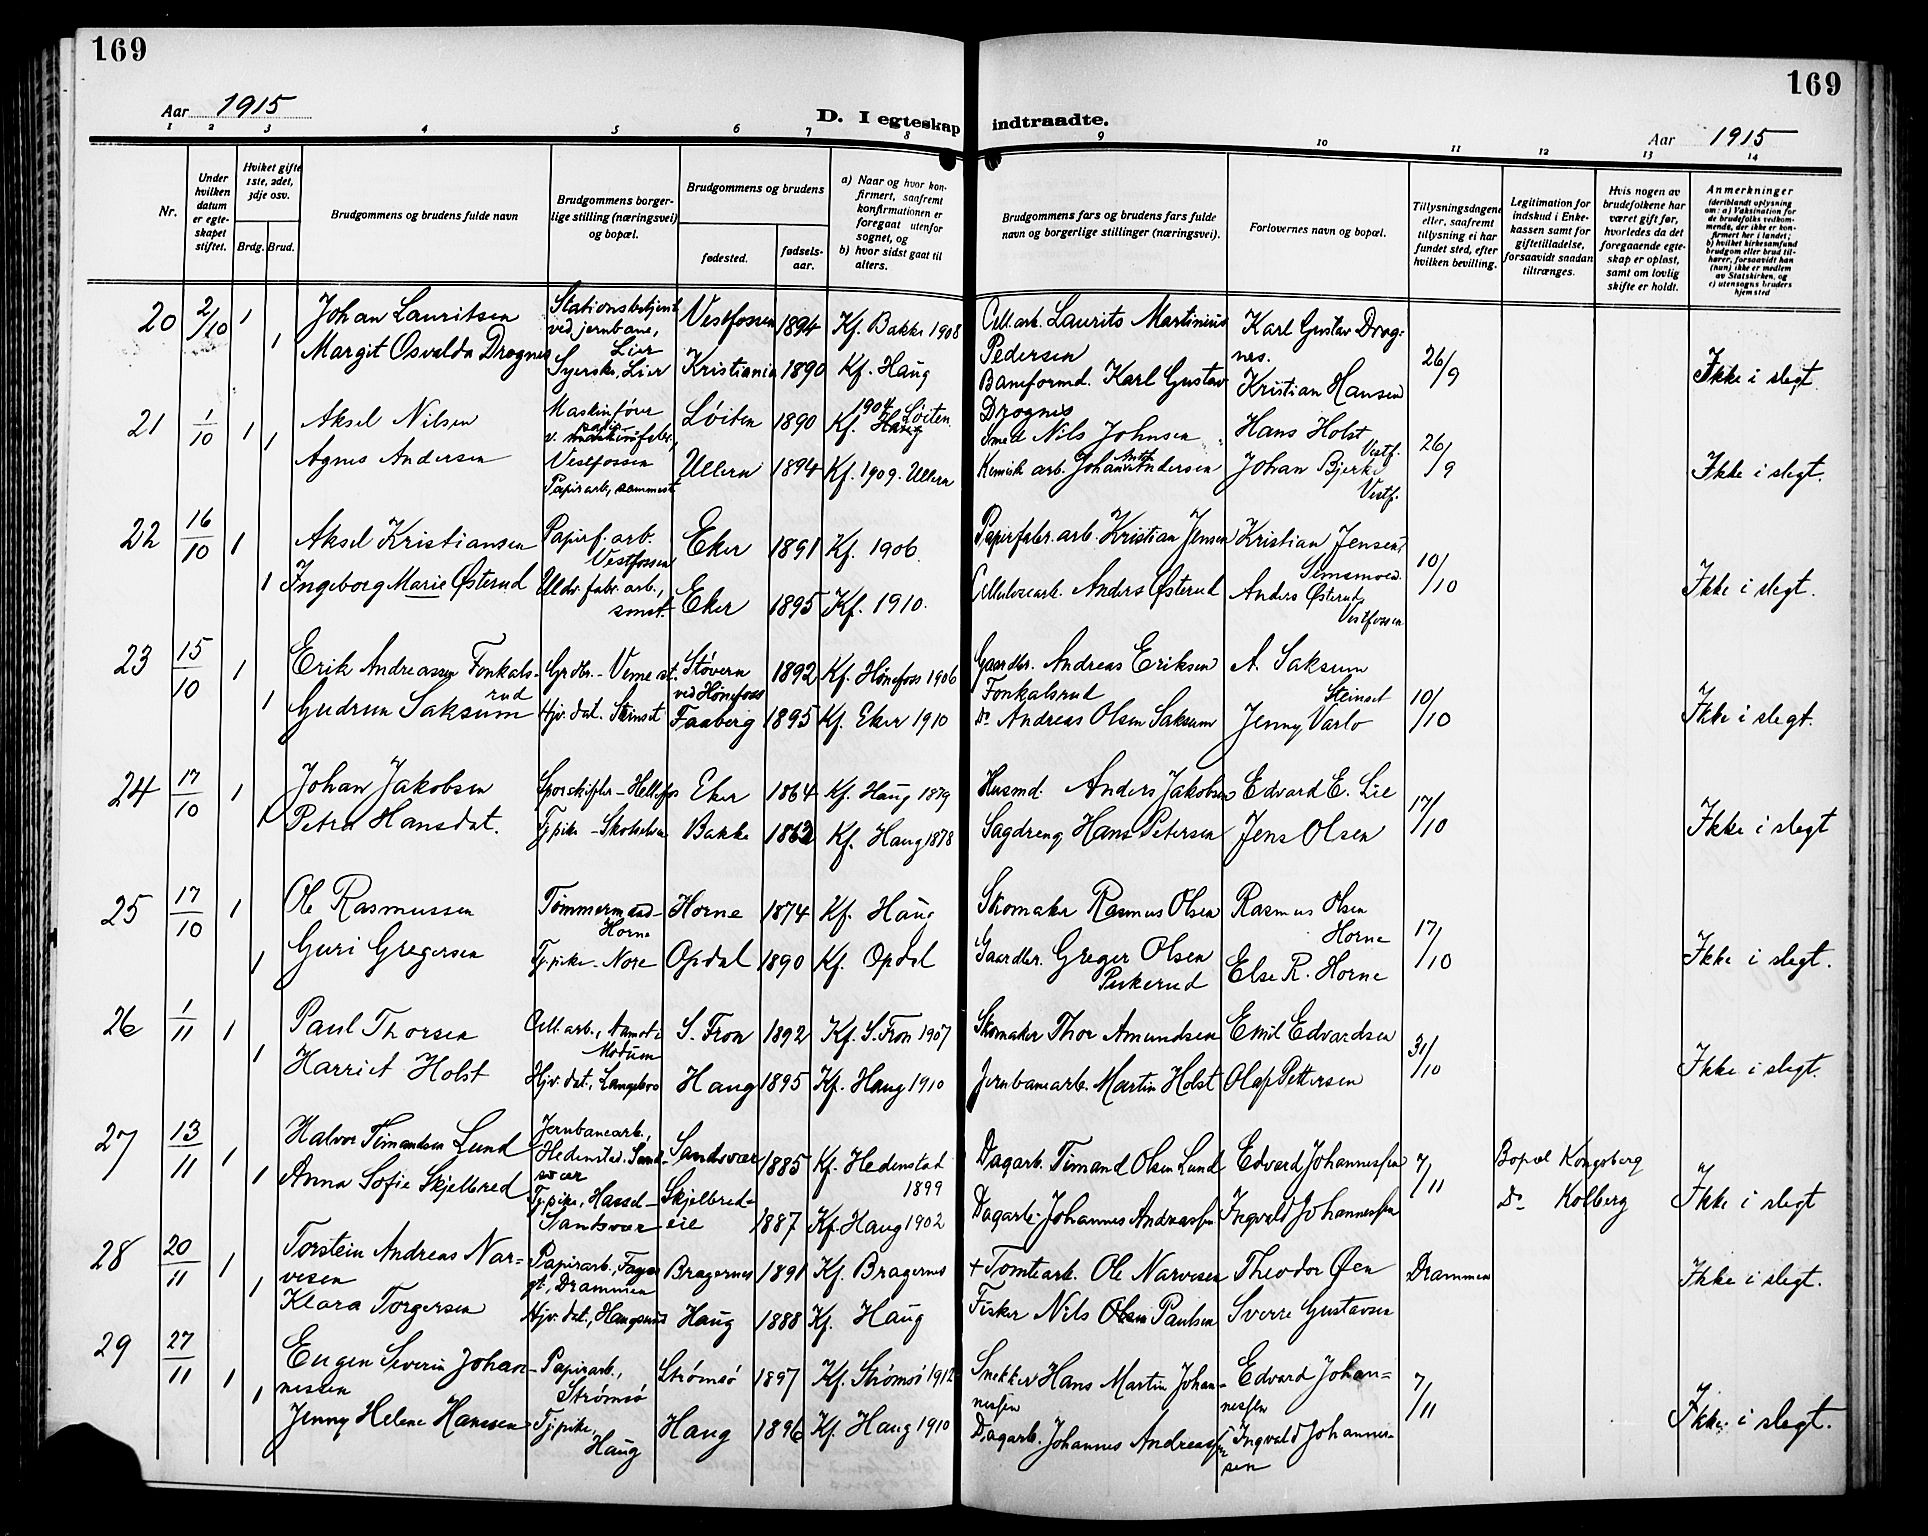 169
169
Aar 1915
D. I egteskap indtraadte.
Aar 1915
1 2 3 4 5 6 7 8 9 10 11 12 13 14
Nr.
Under hvilken datum er egteskapet stiftet.
Hvilket gifte 1ste, 2det, 3dje osv.
Brdg. Brud.
Brudgommens og brudens fulde navn
Brudgommens borgerlige stilling (næringsvei) og bopæl.
Brudgommens og brudens
fødested.
fødselsaar.
a) Naar og hvor konfirmert, saafremt konfirmationen er foregaat utenfor sognet, og
b) hvor sidst gaat til alters.
Brudgommens fars og brudens fars fulde navn og borgerlige stillinger (næringsvei).
Forlovernes navn og bopæl.
Tillysningsdagene eller, saafremt tillysning ei har fundet sted, efter hvilken bevilling.
Legitimation for indskud i Enkekassen samt for giftetilladelse, forsaavidt saadan tiltrænges.
Hvis nogen av brudefolkene har været gift før, hvorledes da det foregaaende egteskap er opløst, samt om lovlig skifte er holdt.
Anmerkninger (deriblandt oplysning om: a) Vaksination for de brudefolks vedkommende, der ikke er konfirmert her i landet; b) hvilket kirkesamfund brudgom eller brud tilhører, forsaavidt han (hun) ikke er medlem av Statskirken, og c) utensogns bruders hjemsted
20 2/10 1 Johan Lauritsen Stationsbetjent ved jernbane, Lier Vestfossen 1894 Kf. Bakke 1908 Cell.arb. Laurits Martinius Pedersen Karl Gustav Drognes. 26/9
1 Margit Osvalda Drognes Syerske, Lier Kristiania 1890 Kf. Haug Baneformd. Karl Gustav Drognes Kristian Hansen Ikke i slegt.
21 1/10 1 Aksel Nilsen Maskinfører v. papirfabr., Vestfossen Løiten 1890 Kf. 1904 Løiten Smed Nils Johnsen Hans Holst Vestf. 26/9
1 Agnes Andersen Papirarb, sammest. Ullern 1894 Kf. 1909. Ullern Kemisk arb. Johan Anton Andersen Johan Bjerke Vestf. Ikke i slegt.
22 16/10 1 Aksel Kristiansen Papirf. arb. Vestfossen Eker 1891 Kf. 1906 Papirfabr. arb. Kristian Jensen Kristian Jensen, Semsmoen 10/10
1 Ingeborg Marie Østerud Uldv. fabr. arb., smst. Eker 1895 Kf. 1910. Cellulosearb. Anders Østerud Anders Østerud Vestfossen Ikke i slegt.
23 15/10 1 Erik Andreassen Fonkalsrud Grdbr. - Veme st. Støveren ved Hønefoss 1892 Kf. Hønefoss 1906 Gaardbr. Andreas Eriksen Fonkalsrud A. Saksum Steinset 10/10
1 Gudrun Saksum Hjv. dat. Steinset Faaberg 1895 Kf. Eker 1910 Do Andreas Olsen Saksum Jenny Varlo Ikke i slegt.
24 17/10 1 Johan Jakobsen Sporskifter - Hellefos Eker 1864 Kf. Haug 1879 Husmd. Anders Jakobsen Edvard E. Lie 17/10
1 Petra Hansdat. Tj.pike - Skotselven Bakke 1862 Kf. Haug 1878 Sagdreng Hans Petersen Jens Olsen Ikke i slegt
25 17/10 1 Ole Rasmussen Tømmermand - Horne Horne 1874 Kf. Haug Skomaker Rasmus Olsen Rasmus Olsen Horne 17/10
1 Guri Gregersen Tj.pike - Nore Opdal 1890 Kf. Opdal Gaardbr. Greger Olsen Else R. Horne Ikke i slegt.
26 1/11 1 Paul Thorsen Cell. arb., Aamot i Modum S. Fron 1892 Kf. S. Fron 1907 Skomaker Thor Amundsen Emil Edvardsen 31/10
1 Harriet Holst Hjv. dat., Langebro Haug 1895 Kf. Haug 1910 Jernbanearb. Martin Holst Olaf Pettersen Ikke i slegt.
27 13/11 1 Halvor Timandsen Lund Jernbanearb., Hedenstad. Sandsvær Sandsvær 1885 Kf. Hedenstad 1899 Dagarb. Timand Olsen Lund Edvard Johannessen 7/11 Bopæl Kongsberg
1 Anna Sofie Skjelbred Tj.pike, Hassel - Sandsvær Skjelbredeie 1887 Kf. Haug 1902 Dagarb. Johannes Andreassen Ingvald Johannessen Do Kolberg Ikke i slegt
28 20/11 1 Torstein Andreas Narvesen Papirarb., Fagergt., Drammen Bragernes 1891 Kf. Bragernes + Tomtearb. Ole Narvesen Theodor Øen Drammen
1 Klara Torgersen Hjv. dat., Haugsund Haug 1888 Kf. Haug Fisker Nils Olsen Paulsen Sverre Gustavsen Ikke i slegt.
29 27/11 1 Eugen Severin Johannessen Papirarb., Strømsø Strømsø 1897 Kf. Strømsø 1912 Snekker Hans Martin Johannessen Edvard Johannessen 7/11
1 Jenny Helene Hanssen Tj.pike, Haug Haug 1896 Kf. Haug 1910 Dagarb. Johannes Andreassen Ingvald Johannessen Ikke i slegt.